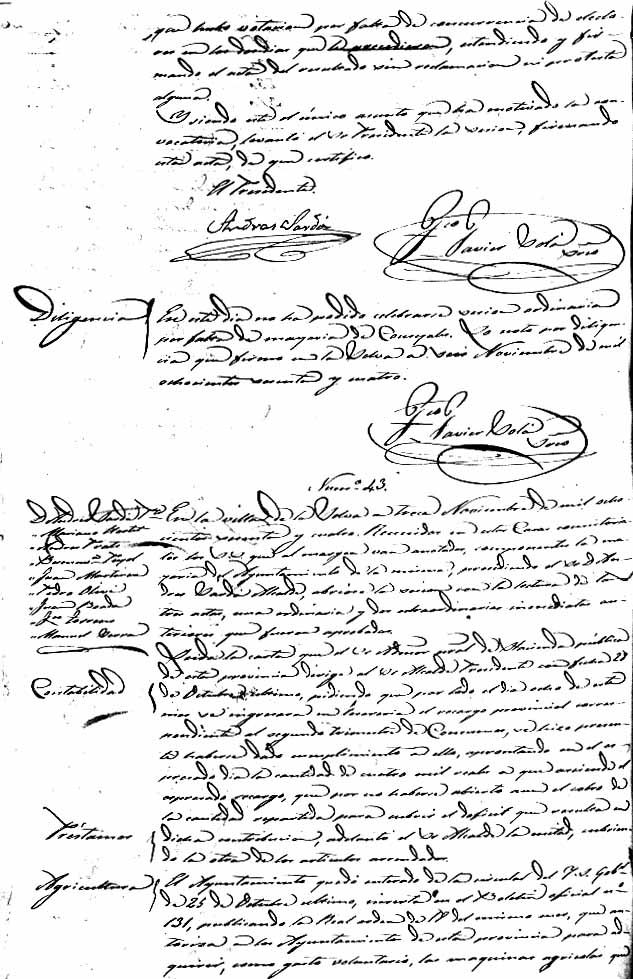 que hubo votacion por falta de concurrencia de electo-
res en los dos dias que le precedieron, estendiendo y fir-
mando el acta del resultado sin reclamacion ni protesta
alguna.
Y siendo este el único asunto que ha motivado la con-
vocatoria, levantó el Sr. Presidente la sesion, firmando
esta acta, de que certifico.
El Presidente.
Andres Sardá
Fco
Javier Solá
Srio
Diligencia
En este dia no ha podido celebrarse sesion ordinaria
por falta de mayoria de Concejales. Lo noto por diligen-
cia que firmo en la Selva a seis Noviembre de mil
ochocientos sesenta y cuatro.
Fco
Javier Solá
Srio
Num.º 43.
En la villa de la Selva a trece Noviembre de mil ocho-
cientos sesenta y cuatro. Reunidos en esta Casa consistorial
los SS. que al margen van anotados, componiendo la ma-
yoria del Ayuntamiento de la misma, presidiendo el Sr. D. An-
dres Sardá Alcalde, abrióse la sesion con la lectura de las
tres actas, una ordinaria y dos extraordinarias inmediatas an-
teriores que fueron aprobadas.
D. Andres Sardá
Mariano
Juan
Pedro Olivé
Juan
Manuel
Contabilidad
Leida la carta que el Sr. Admor. pral. de Hacienda pública
de esta provincia dirige al Sr. Alcalde Presidente con fecha 28
de Octubre último, pidiendo que por todo el dia ocho de este
mes se ingresara en Tesoreria el recargo provincial corres-
pondiente al segundo trimestre de Consumos, se hizo presen-
te haberse dado cumplimiento a ello, aprontando en el es-
presado dia la cantidad de cuatro mil reales a que asciende el
espresado recargo, que por no haberse abierto aun el cobro de
la cantidad repartida para cubrir el deficit que resulta en
Préstamos
dicha contribucion, adelantó el Sr. Alcalde la mitad, cubrien-
do la otra de los articulos arrendados.
Agricultura
El Ayuntamiento quedó enterado de la circular del M. I. S. Gobr.
de 25 de Octubre último, inserta en el Boletin oficial nº
131, publicando la Real orden de 18 del mismo mes, que au-
toriza a los Ayuntamientos de esta provincia para ad-
quirir, como gasto voluntario, las maquinas agricolas que